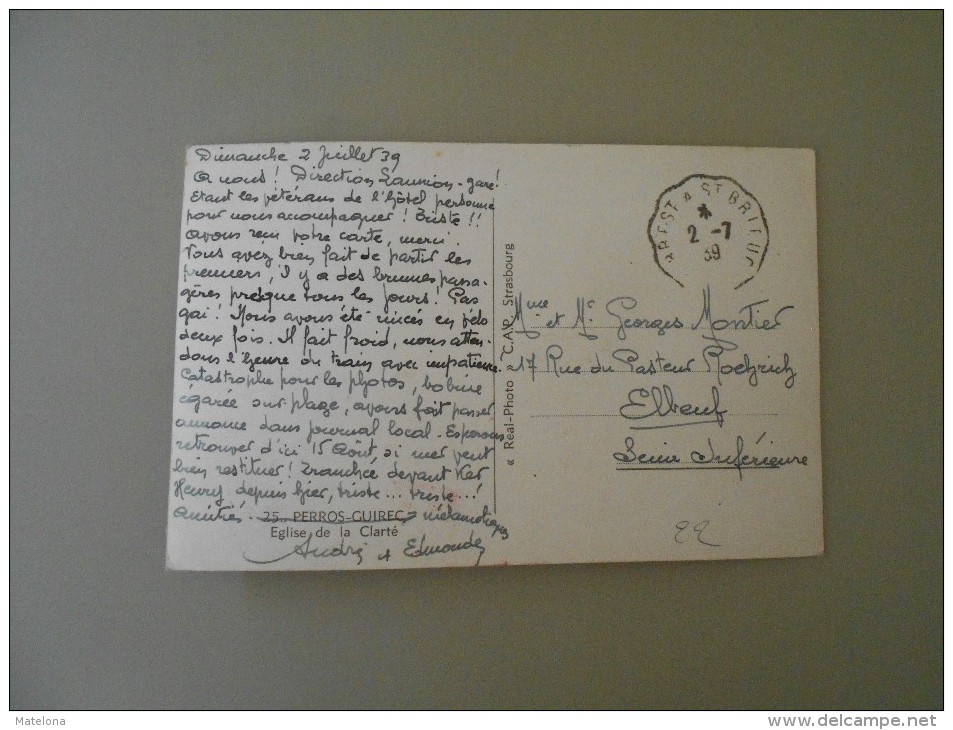 Dimanche 2 Juillet 39
A nous! Direction Lannion-gare!
Etant les vétérans de l'hôtel personne
pour nous acompagner! Triste!!
avons reçu votre carte, merci.
Vous avez bien fait de partir les
premiers, il y a des brumes passa-
gères presque tous les jours! Pas
gai! Nous avons été rincés en vélo
deux fois. Il fait froid, nous atten-
dons l'heure du train avec impatience.
Catastrophe pour les photos, bobine
égarée sur plage, avons fait passer
annonce dans journal local. Esperons
retrouver d'ici 15 Août, si mer veut
bien restituer! Tranchée devant Ker
Henry depuis hier, triste... triste...!
Amitiés mélancoliques
25. PERROS-GUIREC
Eglise de la Clarté
André et Edmonde
« Réal-Photo » C.A.P. Strasbourg
BREST A ST BRIEUC
2 -7
39
Mme et Mr Georges Montier
17 Rue du Pasteur Roehrich
Elbeuf
Seine Inférieure
22
Matelona
http://www.delcampe.net